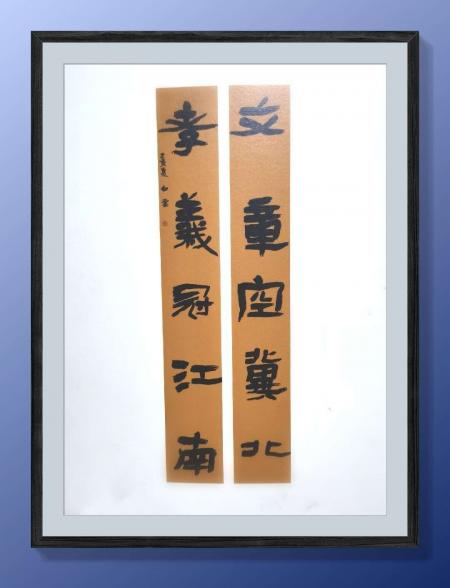 文章空冀北
孝義冠江南